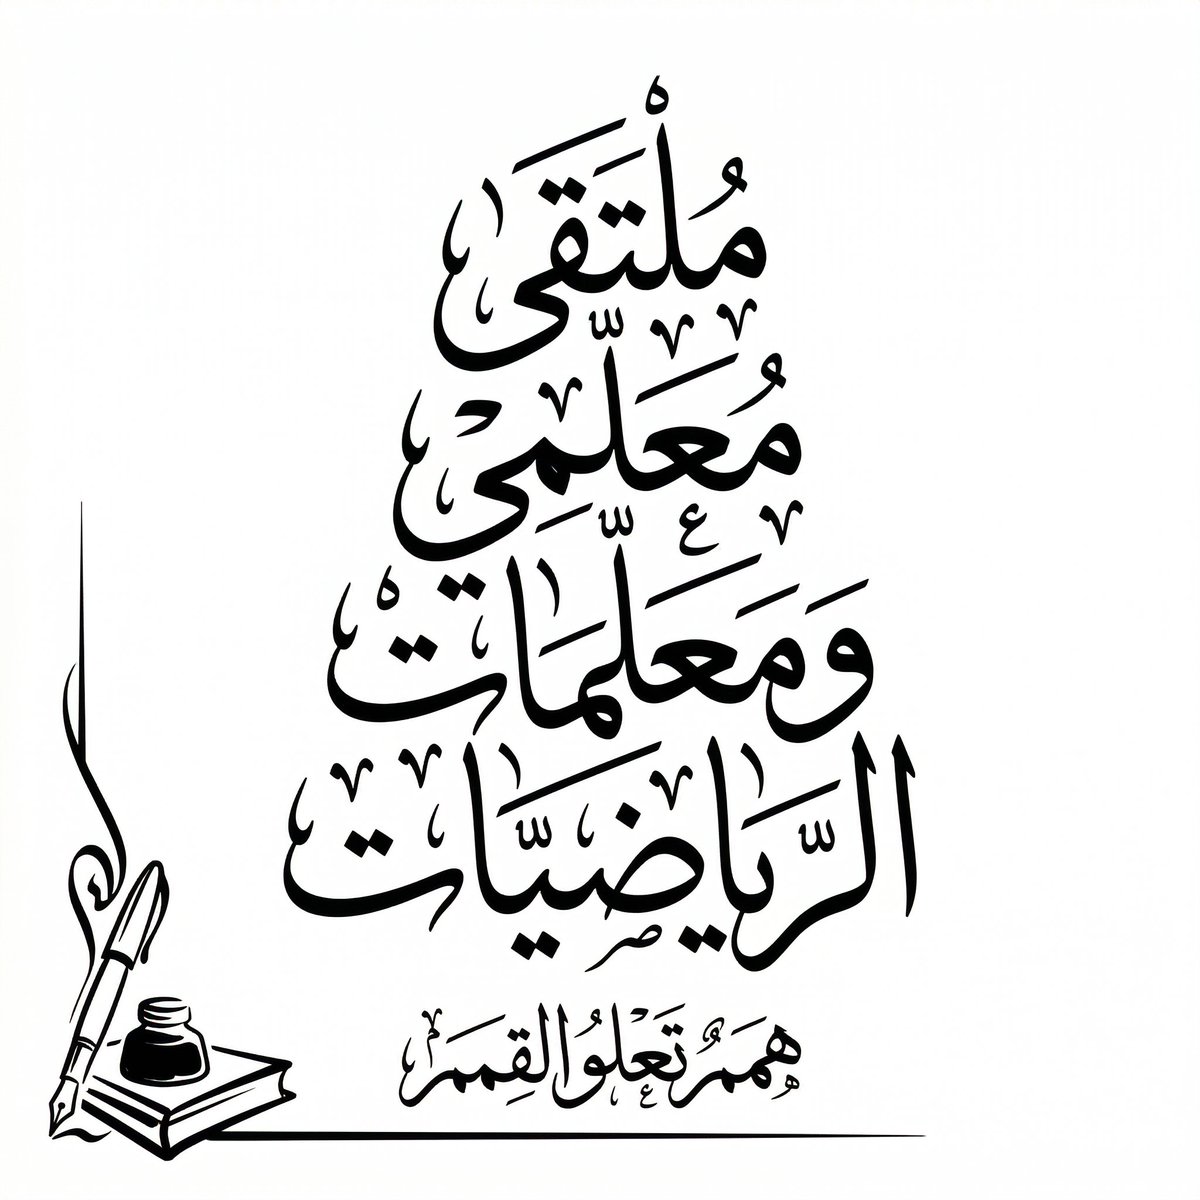 مُلْتَقَى
مُعَلِّمِي
وَمُعَلِّمَاتِ
الرِّيَاضِيَّاتِ
هِمَمٌ تَعْلُو القِمَمَ